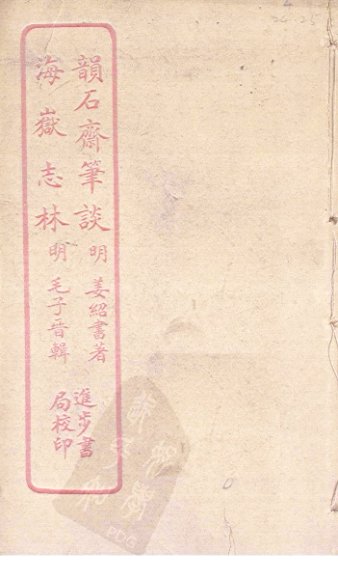 韻石齋筆談 明 姜紹書著
海嶽志林 明 毛子晉輯
進步書
局校印